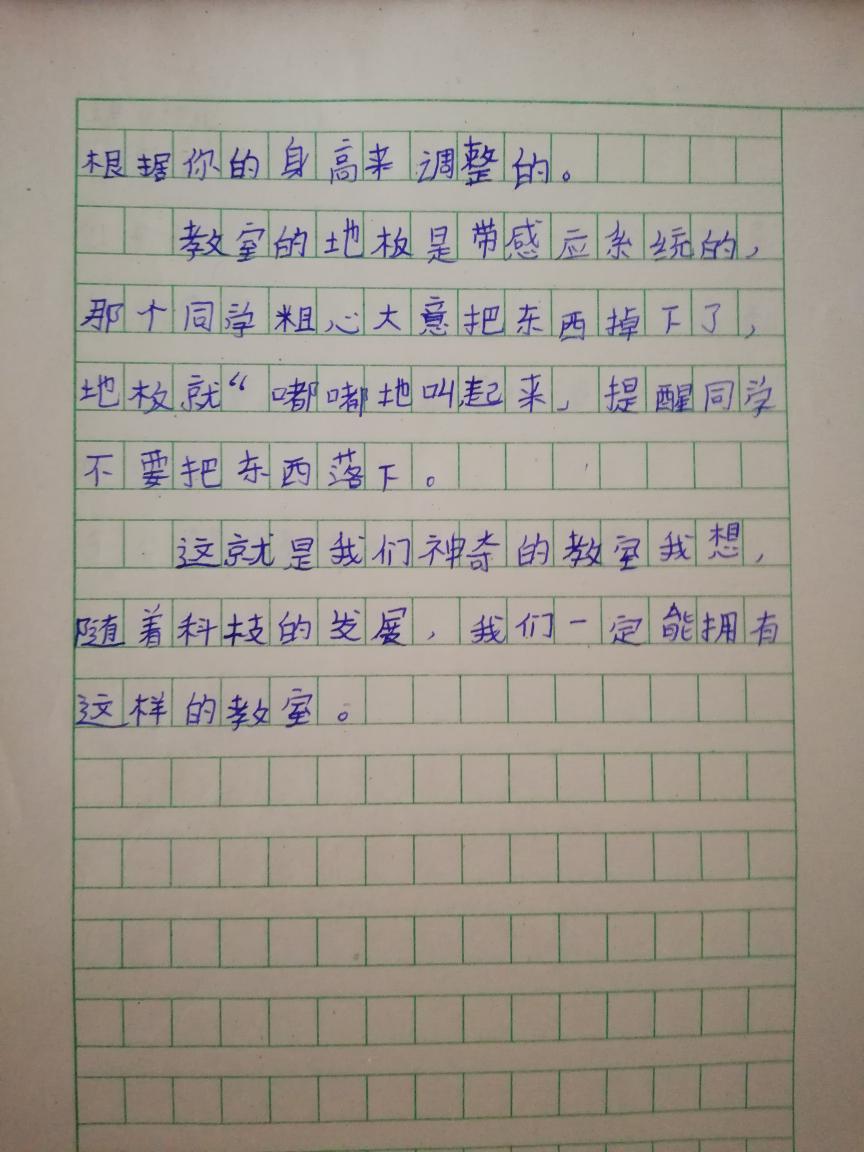 根据你的身高来调整的。
教室的地板是带感应系统的，
那个同学粗心大意把东西掉下了，
地板就“嘟嘟地叫起来，提醒同学
不要把东西落下。
这就是我们神奇的教室我想，
随着科技的发展，我们一定能拥有
这样的教室。